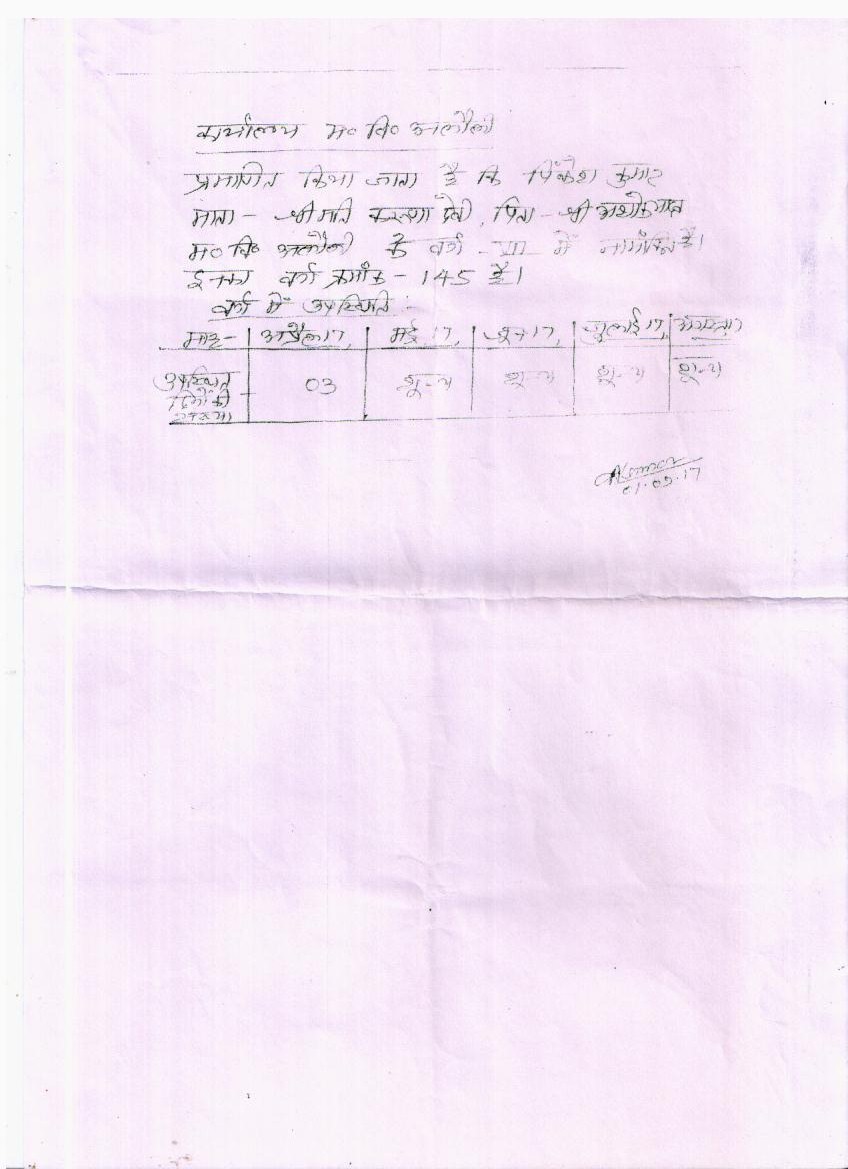 कार्यालय म० वि० अलौली
प्रमाणित किया जाता है कि पिंकेश कुमार
माता - श्रीमति देवी, पिता - श्री
म० वि० अलौली के वर्ग - VIII में नामांकित है।
इनका वर्ग क्रमांक - 145 है।
वर्ग में उपस्थिति :-
माह - अप्रैल 17, मई 17, जून 17, जुलाई 17, अगस्त 17
उपस्थित दिनों की संख्या - 03 शून्य शून्य शून्य शून्य
01.09.17